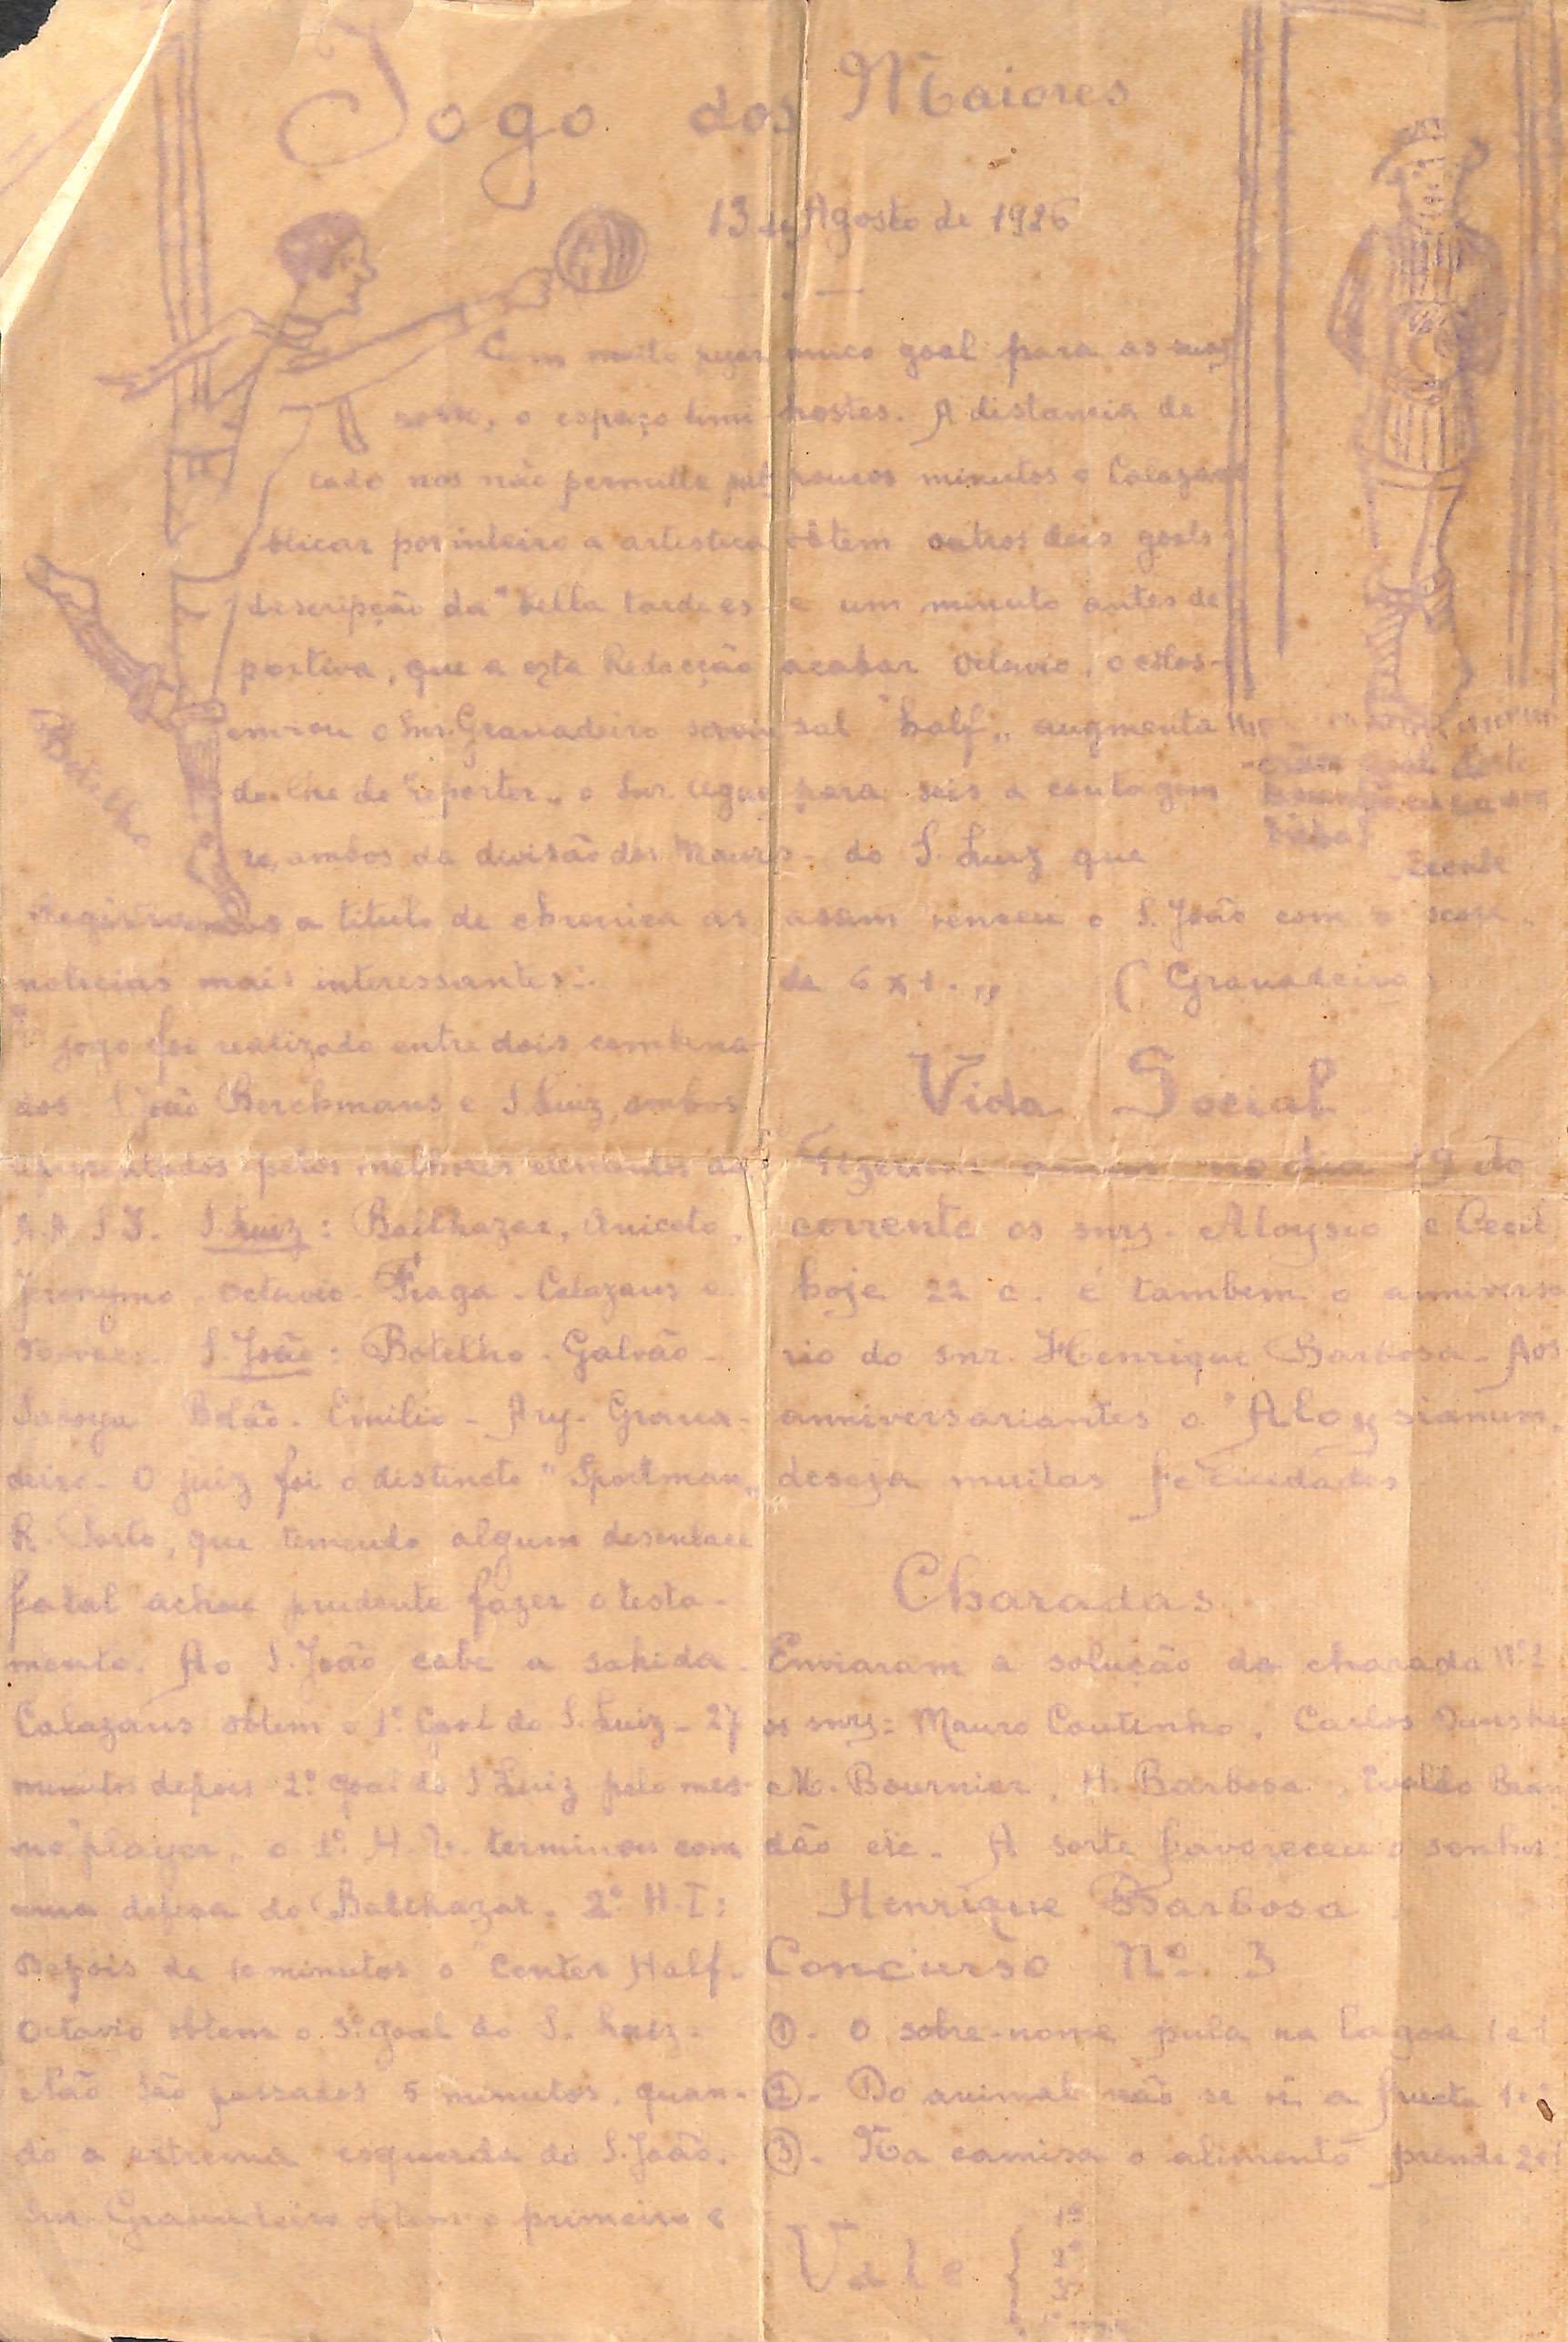 Jogo dos Maiores
13 de Agosto de 1926
Com muito pezar
nosso, o espaço limi
tado nos não permitte pu
blicar por inteiro a artistica
descripção da "bella tarde es
portiva, que a esta Redacção
enviou o Snr. Granadeiro servin
do-lhe de "reporter" o Snr.
ambos da divisão dos Maiores.
Registramos a titulo de chronica as
noticias mais interessantes:
jogo foi realizado entre dois combina
dos S. João Berckmans e S. Luiz, ambos
representados pelos melhores elementos da
A. A. S. J. S. Luiz: Balthazar, Aniceto,
Jeronymo - Octavio - Fraga - Calazans e
S. João: Botelho - Galvão -
Saboya Bolão - Emilio - Ary - Grana-
deiro - O juiz foi o distincto "Sportman"
R. Porto, que temendo algum desenlace
fatal achou prudente fazer o testa-
mento. Ao S. João cabe a sahida.
Calazans obtem o 1º Goal do S. Luiz - 27
minutos depois 2º goal do S Luiz pelo mes-
mo "player" o 1º H. T. terminou com
uma defesa do Balthazar. 2º H. T:
Depois de 10 minutos o Center Half-
Octavio obtem o 3º goal do S. Luiz -
Não são passados 5 minutos, quan-
do a extrema esquerda do S. João,
Snr. Granadeiro obtem o primeiro e
unico goal para as suas
hostes. A distancia de
poucos minutos o Calazans
obtem outros dois goals
e um minuto antes de
acabar Octavio, o colos-
sal "half" augmenta
para seis a contagem
do S. Luiz que
assim venceu o S. João com o score
de 6 x 1. " (Granadeiro)
Botelho
Vida Social
Fizeram annos no dia 19 do
corrente os snrs. Aloysio e Cecil
hoje 22 c. é tambem o anniversa
rio do snr. Henrique Barbosa - Aos
anniversariantes o "Aloysianum"
deseja muitas felicidades
Charadas
Enviaram a solução da charada Nº 2
os snrs: Mauro Coutinho, Carlos
M. Bournier, H. Barbosa, Evaldo Bran
dão etc. A sorte favoreceu o senhor
Henrique Barbosa
Concurso Nº 3
①- O sobre-nome pula na lagoa 1 e 1
②- Do animal não se vê a fructa 1 e
③- Na camisa o alimento prende 2 e 1
Vale { 1º
2º
3º